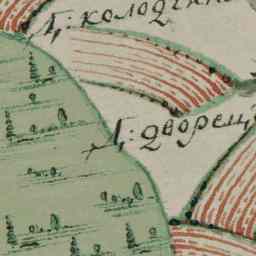 Д: колодезна
Д: дворец